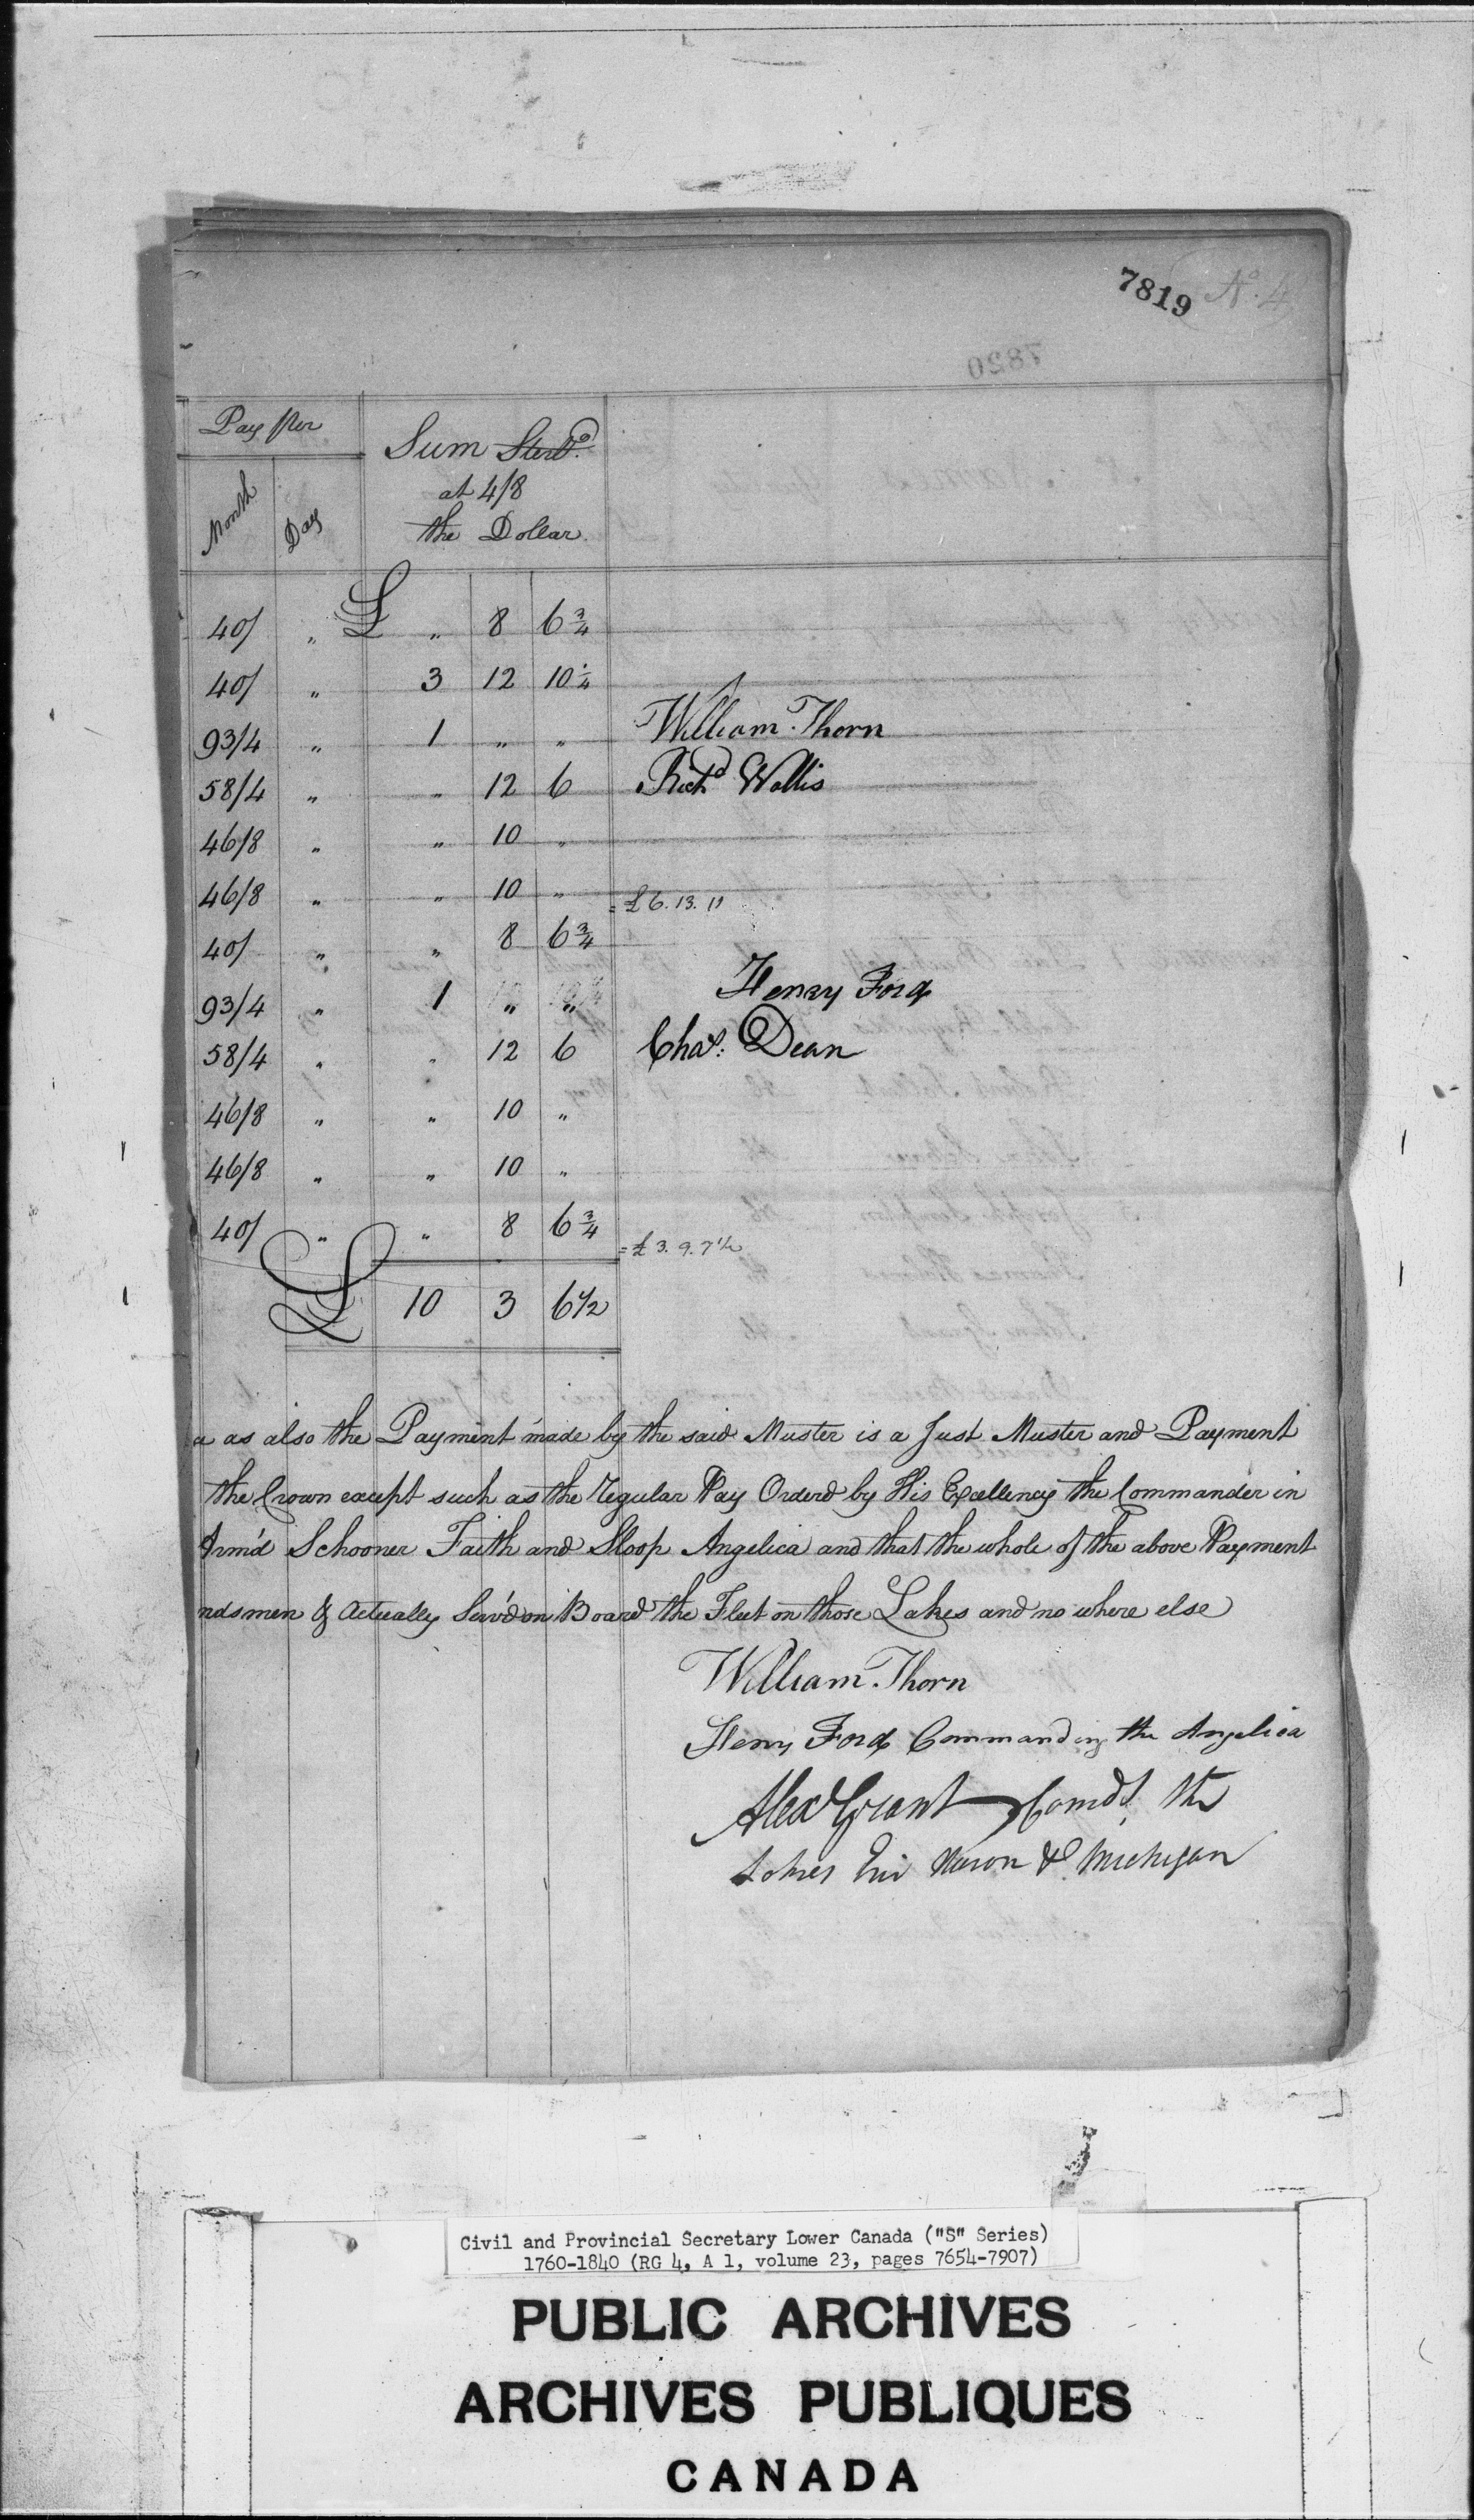 7819 No. 4
Pay per
Month Day
Sum Sterg.
at 4/8
the Dollar
40/ " £ " 8 6 3/4
40/ " 3 12 10 1/4
93/4 " 1 " " William Thorn
58/4 " " 12 6 Richd Wallis
46/8 " " 10 "
46/8 " " 10 " = £ 6. 13. 11
40/ " " 8 6 3/4
93/4 " 1 " " Henry Ford
58/4 " " 12 6 Chas: Dean
46/8 " " 10 "
46/8 " " 10 "
40/ " " 8 6 3/4 = £ 3. 9. 7 1/2
£ 10 3 6 1/2
a as also the Payment made by the said Muster is a Just Muster and Payment
the Crown except such as the regular Pay Orderd by His Excellency the Commander in
Arm'd Schooner Faith and Sloop Angelica and that the whole of the above Payment
ndsmen & Actually Serv'd on Board the Fleet on those Lakes and no where else
William Thorn
Henry Ford Commanding the Angelica
Alexr Grant Comdt the
Lakes Erie Huron & Michigan
Civil and Provincial Secretary Lower Canada ("S" Series)
1760-1840 (RG 4, A 1, volume 23, pages 7654-7907)
PUBLIC ARCHIVES
ARCHIVES PUBLIQUES
CANADA